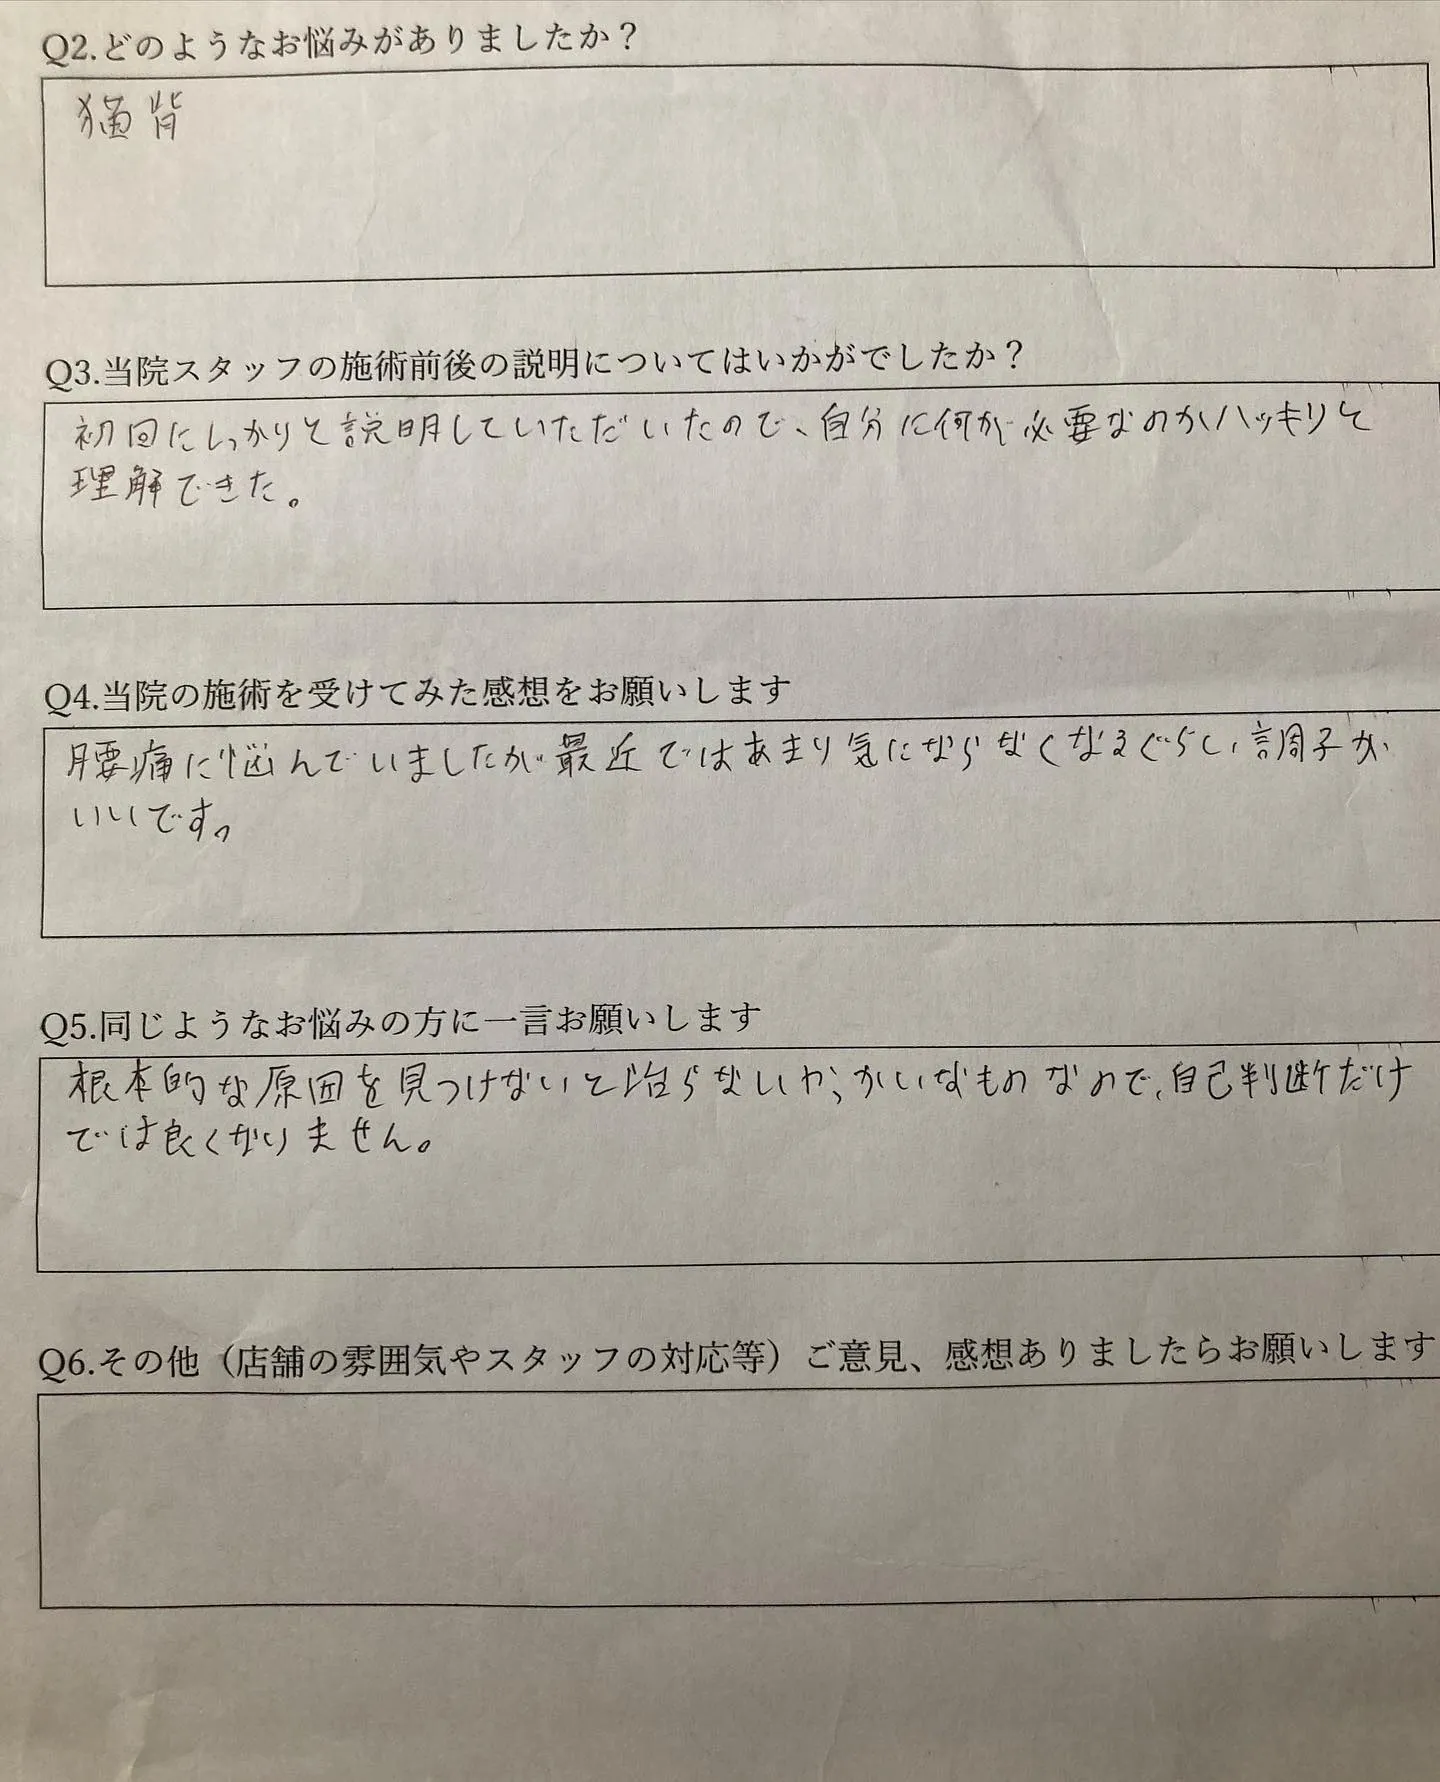 Q2.どのようなお悩みがありましたか？
猫背
Q3.当院スタッフの施術前後の説明についてはいかがでしたか？
初回にしっかりと説明していただいたので、自分に何が必要なのかハッキリと
理解できた。
Q4.当院の施術を受けてみた感想をお願いします
腰痛に悩んでいましたが最近ではあまり気にならなくなるぐらい調子が
いいです。
Q5.同じようなお悩みの方に一言お願いします
根本的な原因を見つけないと治らないやっかいなものなので、自己判断だけ
では良くなりません。
Q6.その他（店舗の雰囲気やスタッフの対応等）ご意見、感想ありましたらお願いします